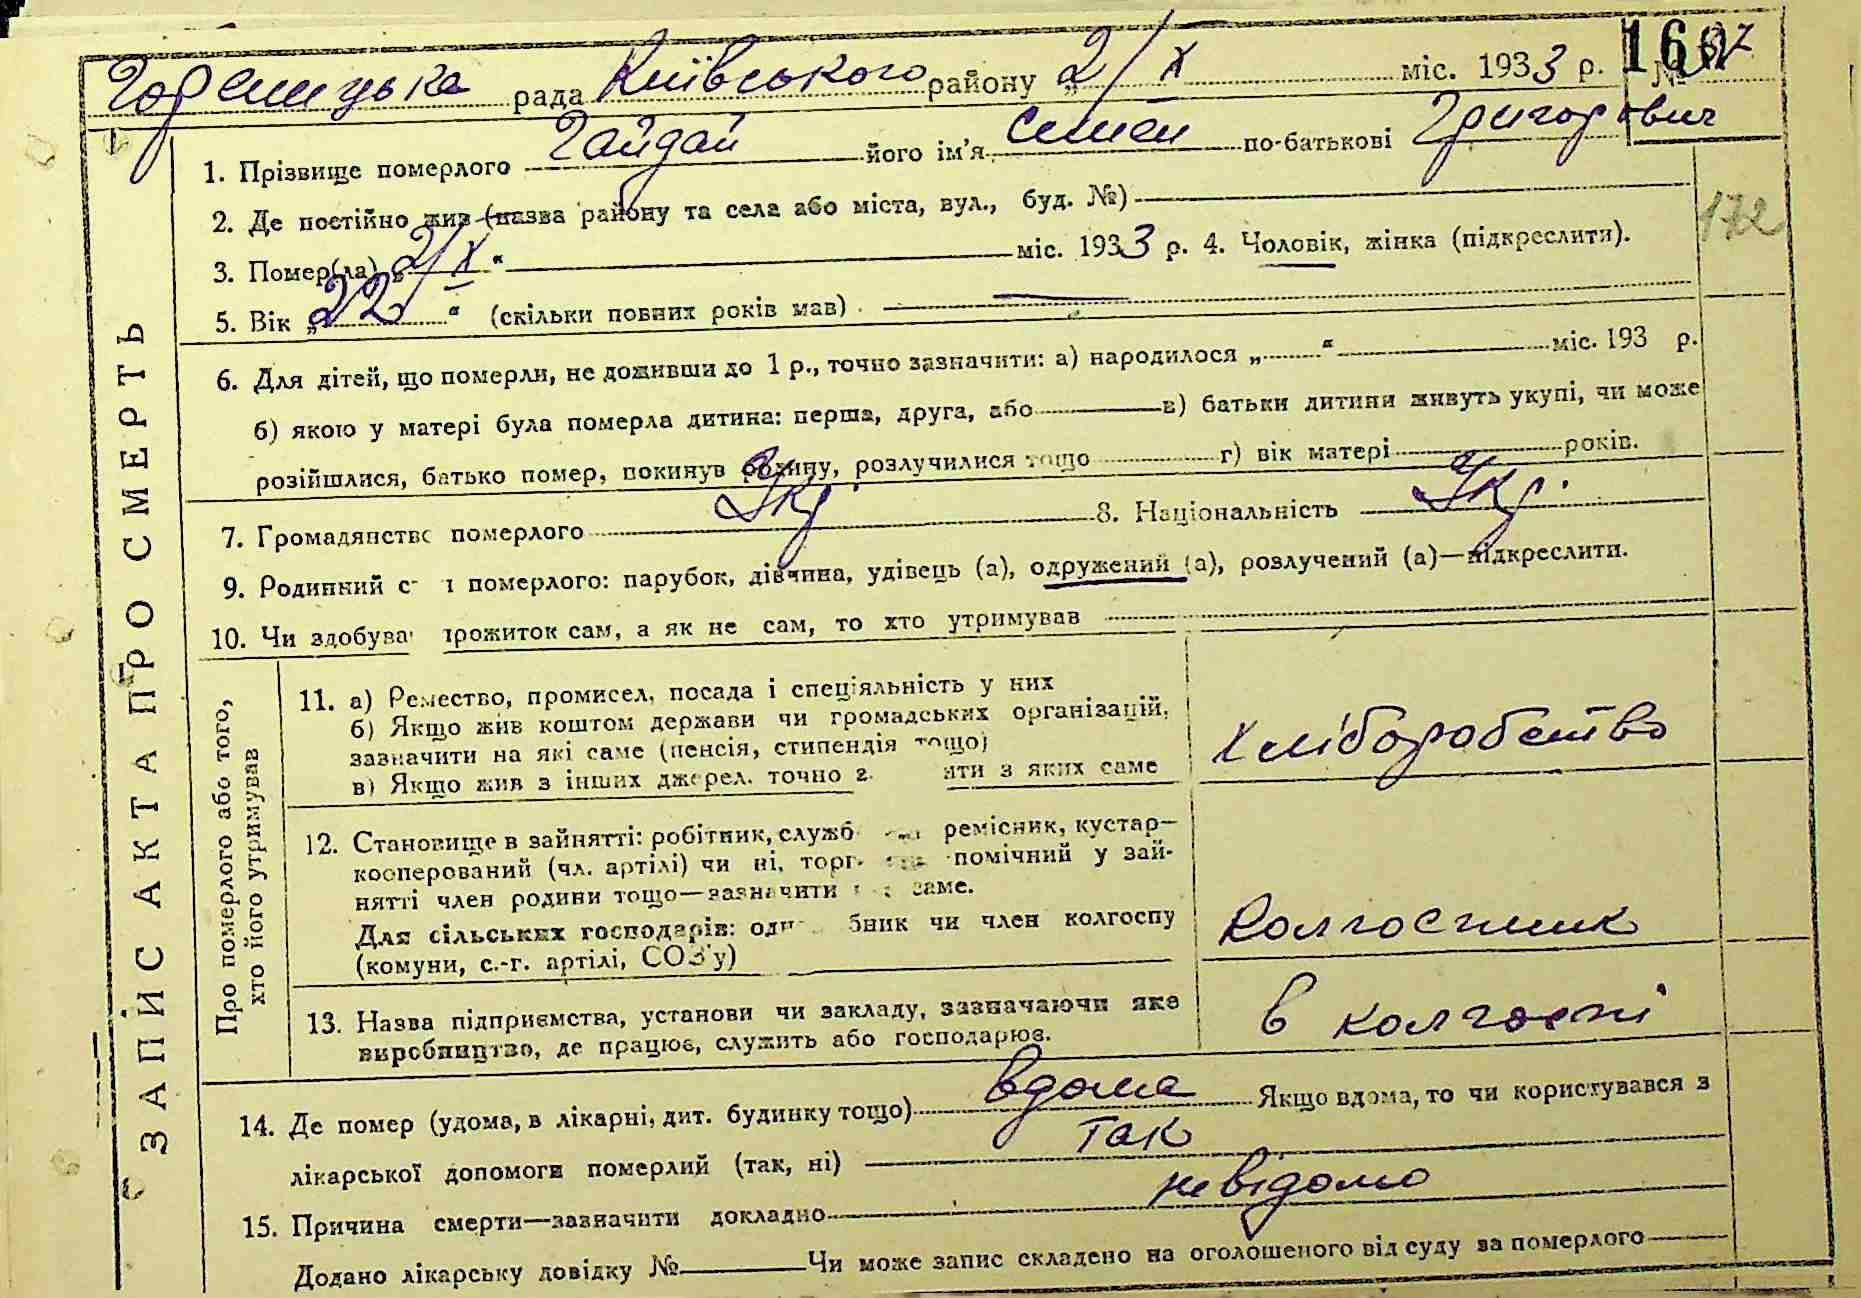 Гореницька рада Київського району „2/X міс. 1933 р. №
1. Прізвище померлого Гайдай його ім'я Семен по-батькові Григорович
2. Де постійно жив (назва району та села або міста, вул., буд. №)
172
3. Помер(ла) „2/X“ міс. 1933 р. 4. Чоловік, жінка (підкреслити).
5. Вік „22“ (скільки повних років мав)
6. Для дітей, що померли, не доживши до 1 р., точно зазначити: а) народилося „ “ міс. 193 р.
б) якою у матері була померла дитина: перша, друга, або в) батьки дитини живуть укупі, чи може
розійшлися, батько помер, покинув родину, розлучилися тощо г) вік матері років.
7. Громадянство померлого Укр. 8. Національність Укр.
9. Родинний померлого: парубок, дівчина, удівець (а), одружений (а), розлучений (а)—підкреслити.
10. Чи здобував прожиток сам, а як не сам, то хто утримував
ЗАПИС АКТА ПРО СМЕРТЬ
Про померлого або того,
хто його утримував
11. а) Ремество, промисел, посада і спеціяльність у них
б) Якщо жив коштом держави чи громадських організацій,
зазначити на які саме (пенсія, стипендія тощо)
в) Якщо жив з інших джерел, точно з яких саме
Хліборобство
12. Становище в зайнятті: робітник, ремісник, кустар—
кооперований (чл. артілі) чи ні, помічний у зай-
нятті член родини тощо—зазначити саме.
Для сільських господарів: чи член колгоспу
(комуни, с.-г. артілі, СОЗ'у)
Колгоспник
13. Назва підприємства, установи чи закладу, зазначаючи яке
виробництво, де працює, служить або господарює.
в колгоспі
14. Де помер (удома, в лікарні, дит. будинку тощо) вдома Якщо вдома, то чи користувався з
лікарської допомоги померлий (так, ні) так
15. Причина смерти—зазначити докладно невідомо
Додано лікарську довідку № Чи може запис складено на оголошеного від суду за померлого